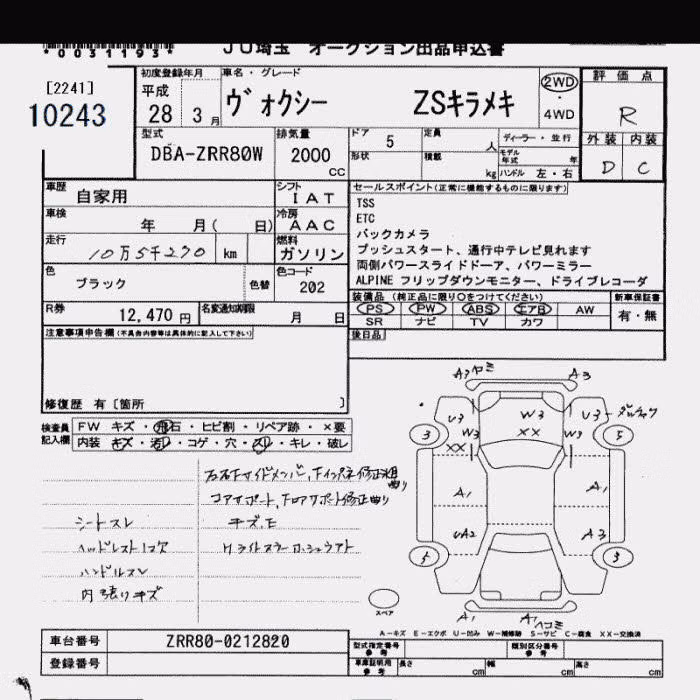 *0031193*
JU埼玉 オークション出品申込書
[2241]
10243
初度登録年月
平成
28 3月
車名・グレード
ヴォクシー ZSキラメキ
2WD
4WD
評価点
R
型式
DBA-ZRR80W
排気量
2000
CC
ドア 5
形状
定員
人
積載
kg
ディーラー・並行
モデル年式 年
ハンドル 左・右
外装 内装
D C
車歴
自家用
シフト
IAT
車検
年 月( 日)
冷房
AAC
走行
10万5千270 km
燃料
ガソリン
色
ブラック
色替
色コード
202
R券
12,470円
名変通知期限
月 日
セールスポイント(正常に機能するものに限ります)
TSS
ETC
バックカメラ
プッシュスタート、通行中テレビ見れます
両側パワースライドドーア、パワーミラー
ALPINE フリップダウンモニター、ドライブレコーダ
装備品(純正品に限り○をつけてください)
PS PW ABS エアB AW
SR ナビ TV カワ
新車保証書
有・無
後日品
注意事項申告欄(不具合内容等は具体的に記入して下さい)
修復歴 有〔箇所 〕
検査員記入欄
FW キズ・飛石・ヒビ割・リペア跡・×要
内装 キズ・汚れ・コゲ・穴・スレ・キレ・破レ
コアサポート
シートスレ
キズ.E
ヘッドレスト1コ欠
ハンドルスレ
内張りキズ
A3
A3
U3
W3
XX
W3
XX
W3
U3
3
5
A1
A1
UA2
A3
5
3
スペア
A1
A1
ヘコミ
A-キズ E-エクボ U-凹み W-補修跡 S-サビ C-腐食 XX-交換済
車台番号
ZRR80-0212820
登録番号
型式指定番号
参考
類別区分番号
参考
車庫証明用
参考
長さ cm
幅 cm
高さ cm